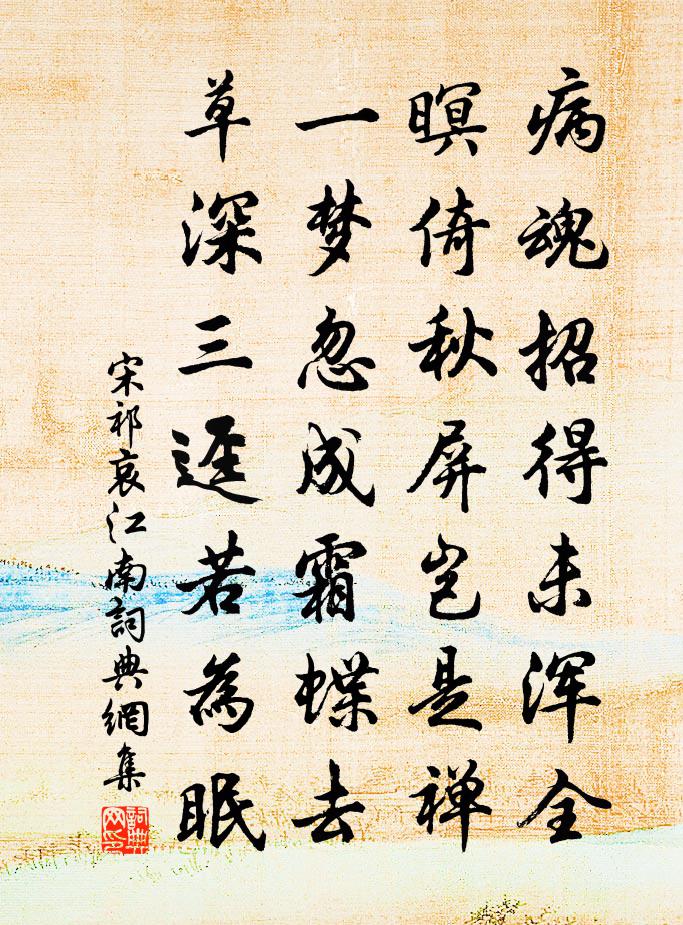 病魂招得未浑全
瞑倚秋屏岂是禅
一梦忽成霜蝶去
草深三迳若為眠
宋祁哀江南詞典網集
詞典网印